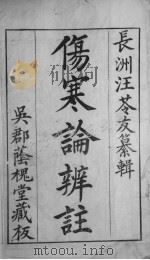 長洲汪苓友纂輯
傷寒論辨註
吳郡蔭槐堂藏板
mtoou.info
mtoou.info